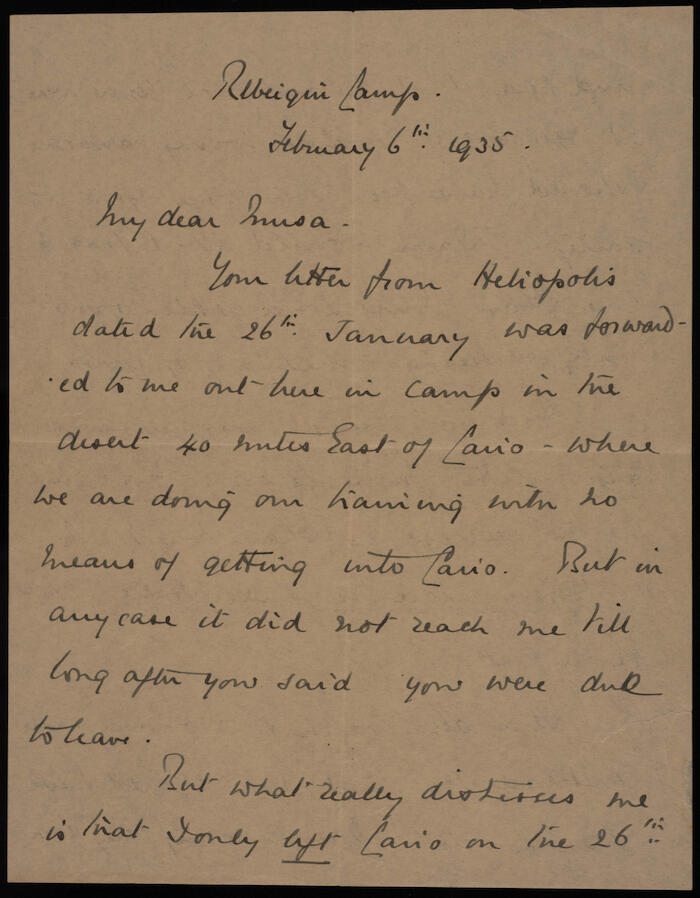 Camp.
February 6th. 1935.
My dear Musa -
Your letter from Heliopolis
dated the 26th. January was forward-
-ed to me out here in camp in the
desert 40 miles East of Cairo - where
we are doing our training with no
means of getting into Cairo. But in
any case it did not reach me till
long after you said you were due
to leave.
But what really distresses me
is that I only left Cairo on the 26th.